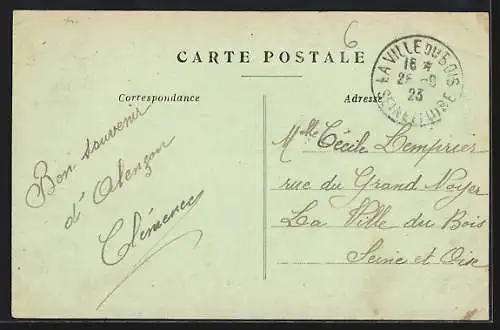 6
CARTE POSTALE
LA VILLE DU BOIS
16 *
23
SEINE ET OISE
Correspondance
Adresse
Bon souvenir
d'Alençon
Clémence
Mlle Cécile Lemprier
rue du Grand Noyer
La Ville du Bois
Seine et Oise